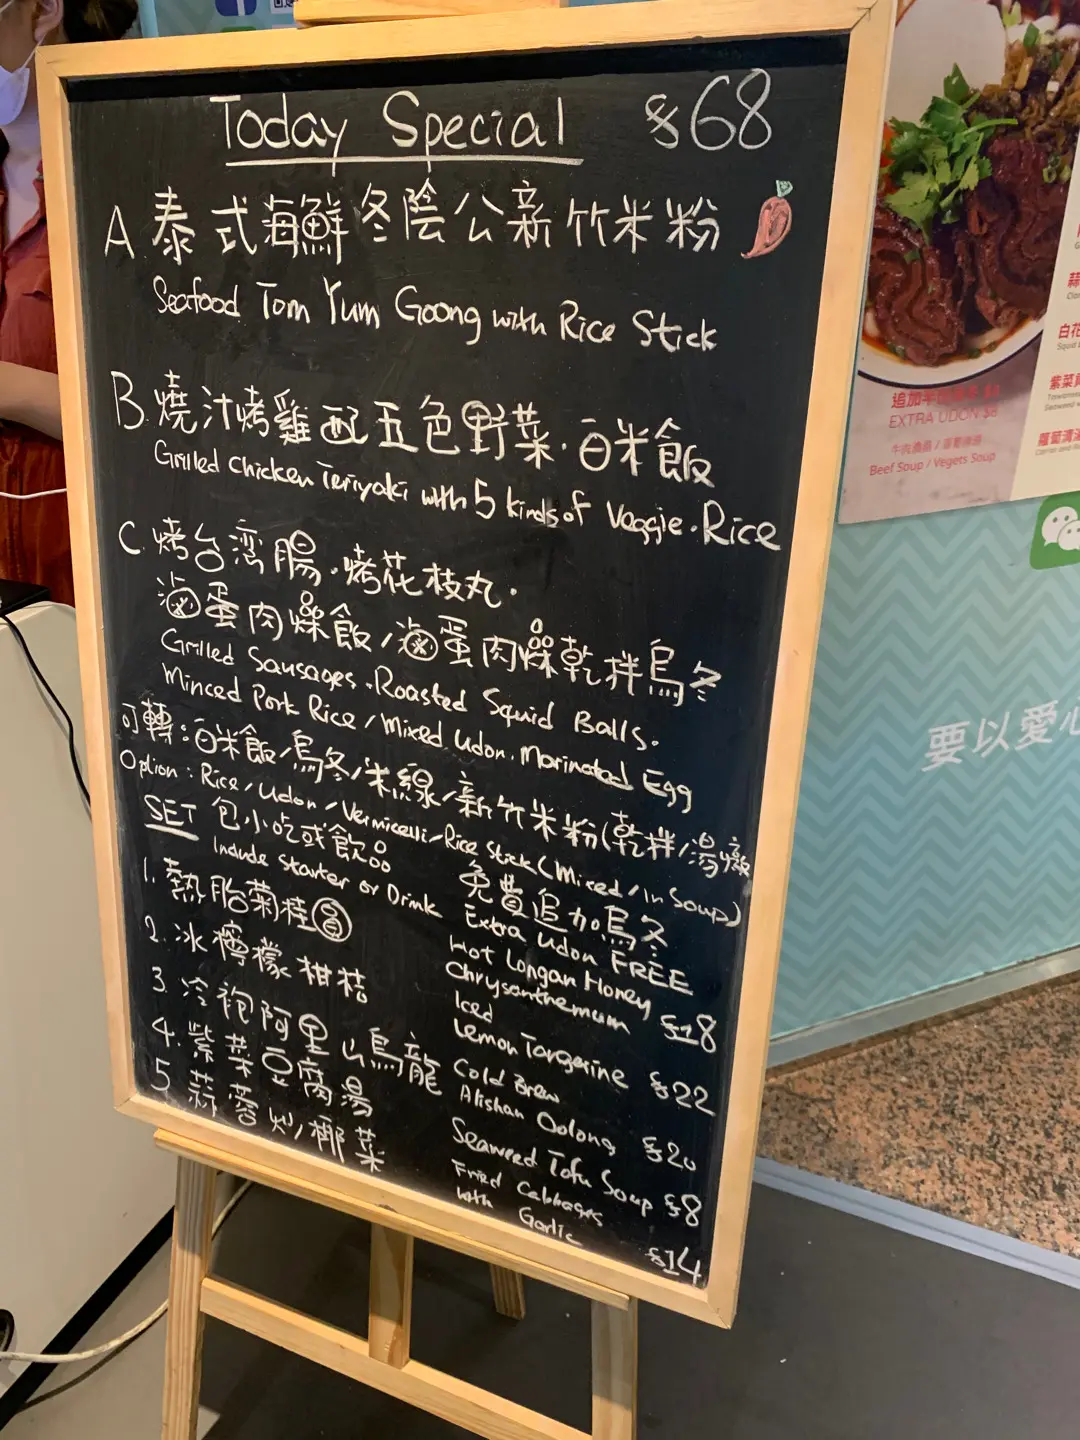 Today Special $68
A 泰式海鮮冬陰公新竹米粉
Seafood Tom Yum Goong with Rice Stick
B. 燒汁烤雞配五色野菜·白米飯
Grilled Chicken Teriyaki with 5 kinds of Veggie·Rice
C. 烤台灣腸·烤花枝丸·
滷蛋肉燥飯/滷蛋肉燥乾拌烏冬
Grilled Sausages·Roasted Squid Balls·
Minced Pork Rice/Mixed Udon·Marinated Egg
可轉:白米飯/烏冬/米線/新竹米粉(乾拌/湯
Option: Rice/Udon/Vermicelli/Rice Stick(Mixed/In Soup)
SET 包小吃或飲品
Include Starter or Drink
免費追加烏冬
Extra Udon FREE
1. 熱胎菊桂圓
Hot Longan Honey
Chrysanthemum $18
2. 冰檸檬柑桔
Iced
Lemon Tangerine $22
3. 冷袍阿里山烏龍
Cold Brew
Alishan Oolong $20
4. 紫菜豆腐湯
Seaweed Tofu Soup $8
5. 蒜蓉炒椰菜
Fried Cabbages
with Garlic $14
追加牛
EXTRA UDON $8
Beef Soup / Veggets Soup
蒜
白花
Squid
紫菜
Seaweed
蘿蔔清湯
要以愛心